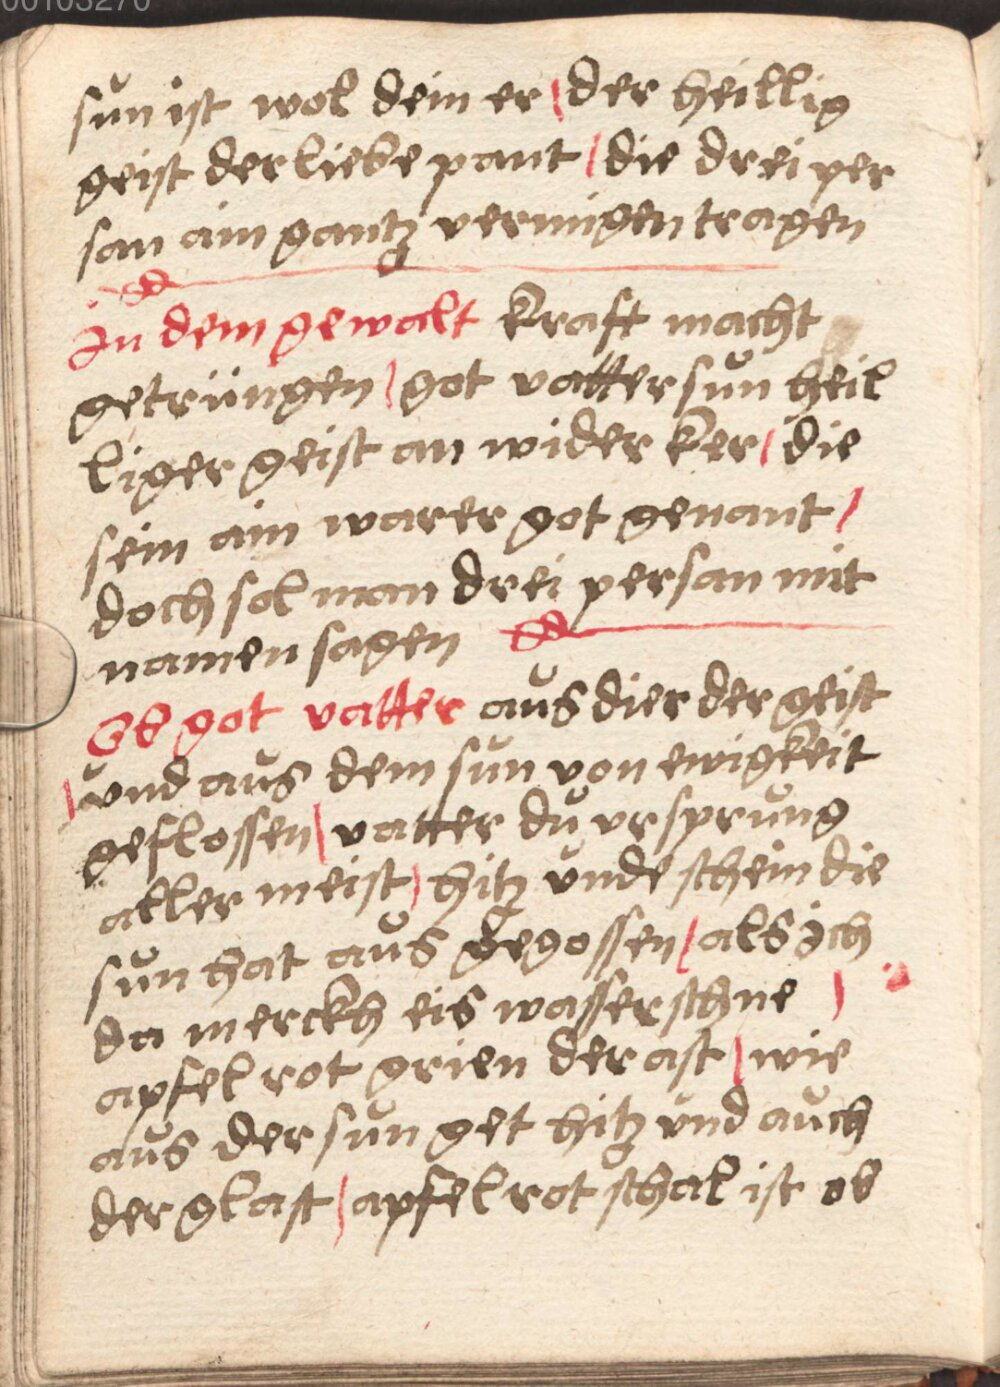 00103270
sun ist wol dein er / der heillig
geist der liebe pant / die drei per
san ain gantz vermigen tragen
In dem gewalt kraft macht
getrüngen / got vatter sun heil
liger geist an wider ker / die
sein ain warer got genant /
doch sol man drei persan mit
namen sagen
Ob got vatter aus dier der geist
/ vnd aus dem sun von ewigkeit
geflossen / vatter du vrsprung
aller meist / hitz vnde schein die
sun hat aus gegossen / als ich
da merckh eis wasser schne /
apfel rot grien der ast / wie
aus der sun get hitz vnd auch
der glast / apfel rot schal ist ob